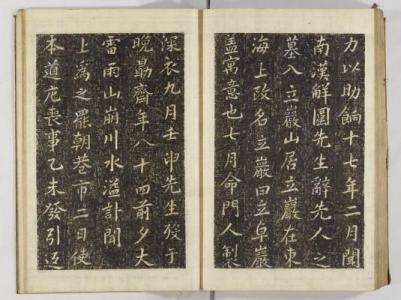 力以助餉十七年二月聞
南漢解圍先生辭先人之
墓入立巖山居立巖在東
海上改名立巖曰立卓巖
盖寓意也七月命門人製
深衣九月壬申先生歿于
晩勗齋年八十四前夕大
雷雨山崩川水溢訃聞
上爲之罷朝巷市二日使
本道庀喪事乙未發引